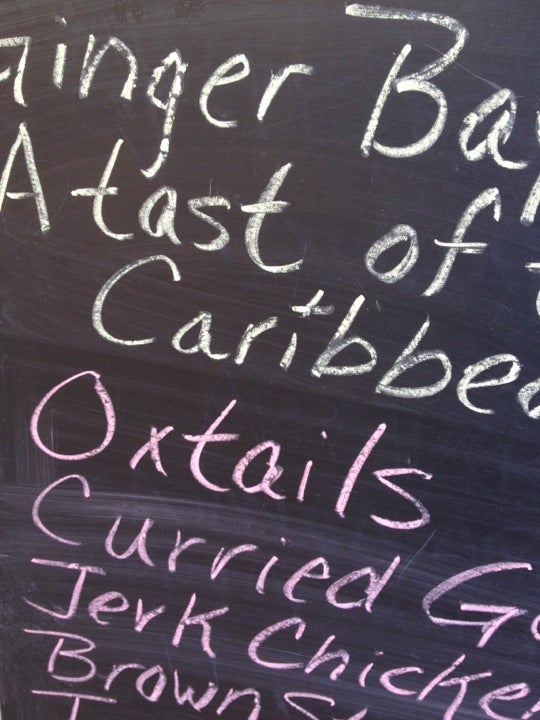 Ginger Bay
A tast of t
Caribbea
Oxtails
Curried Go
Jerk Chicke
Brown S